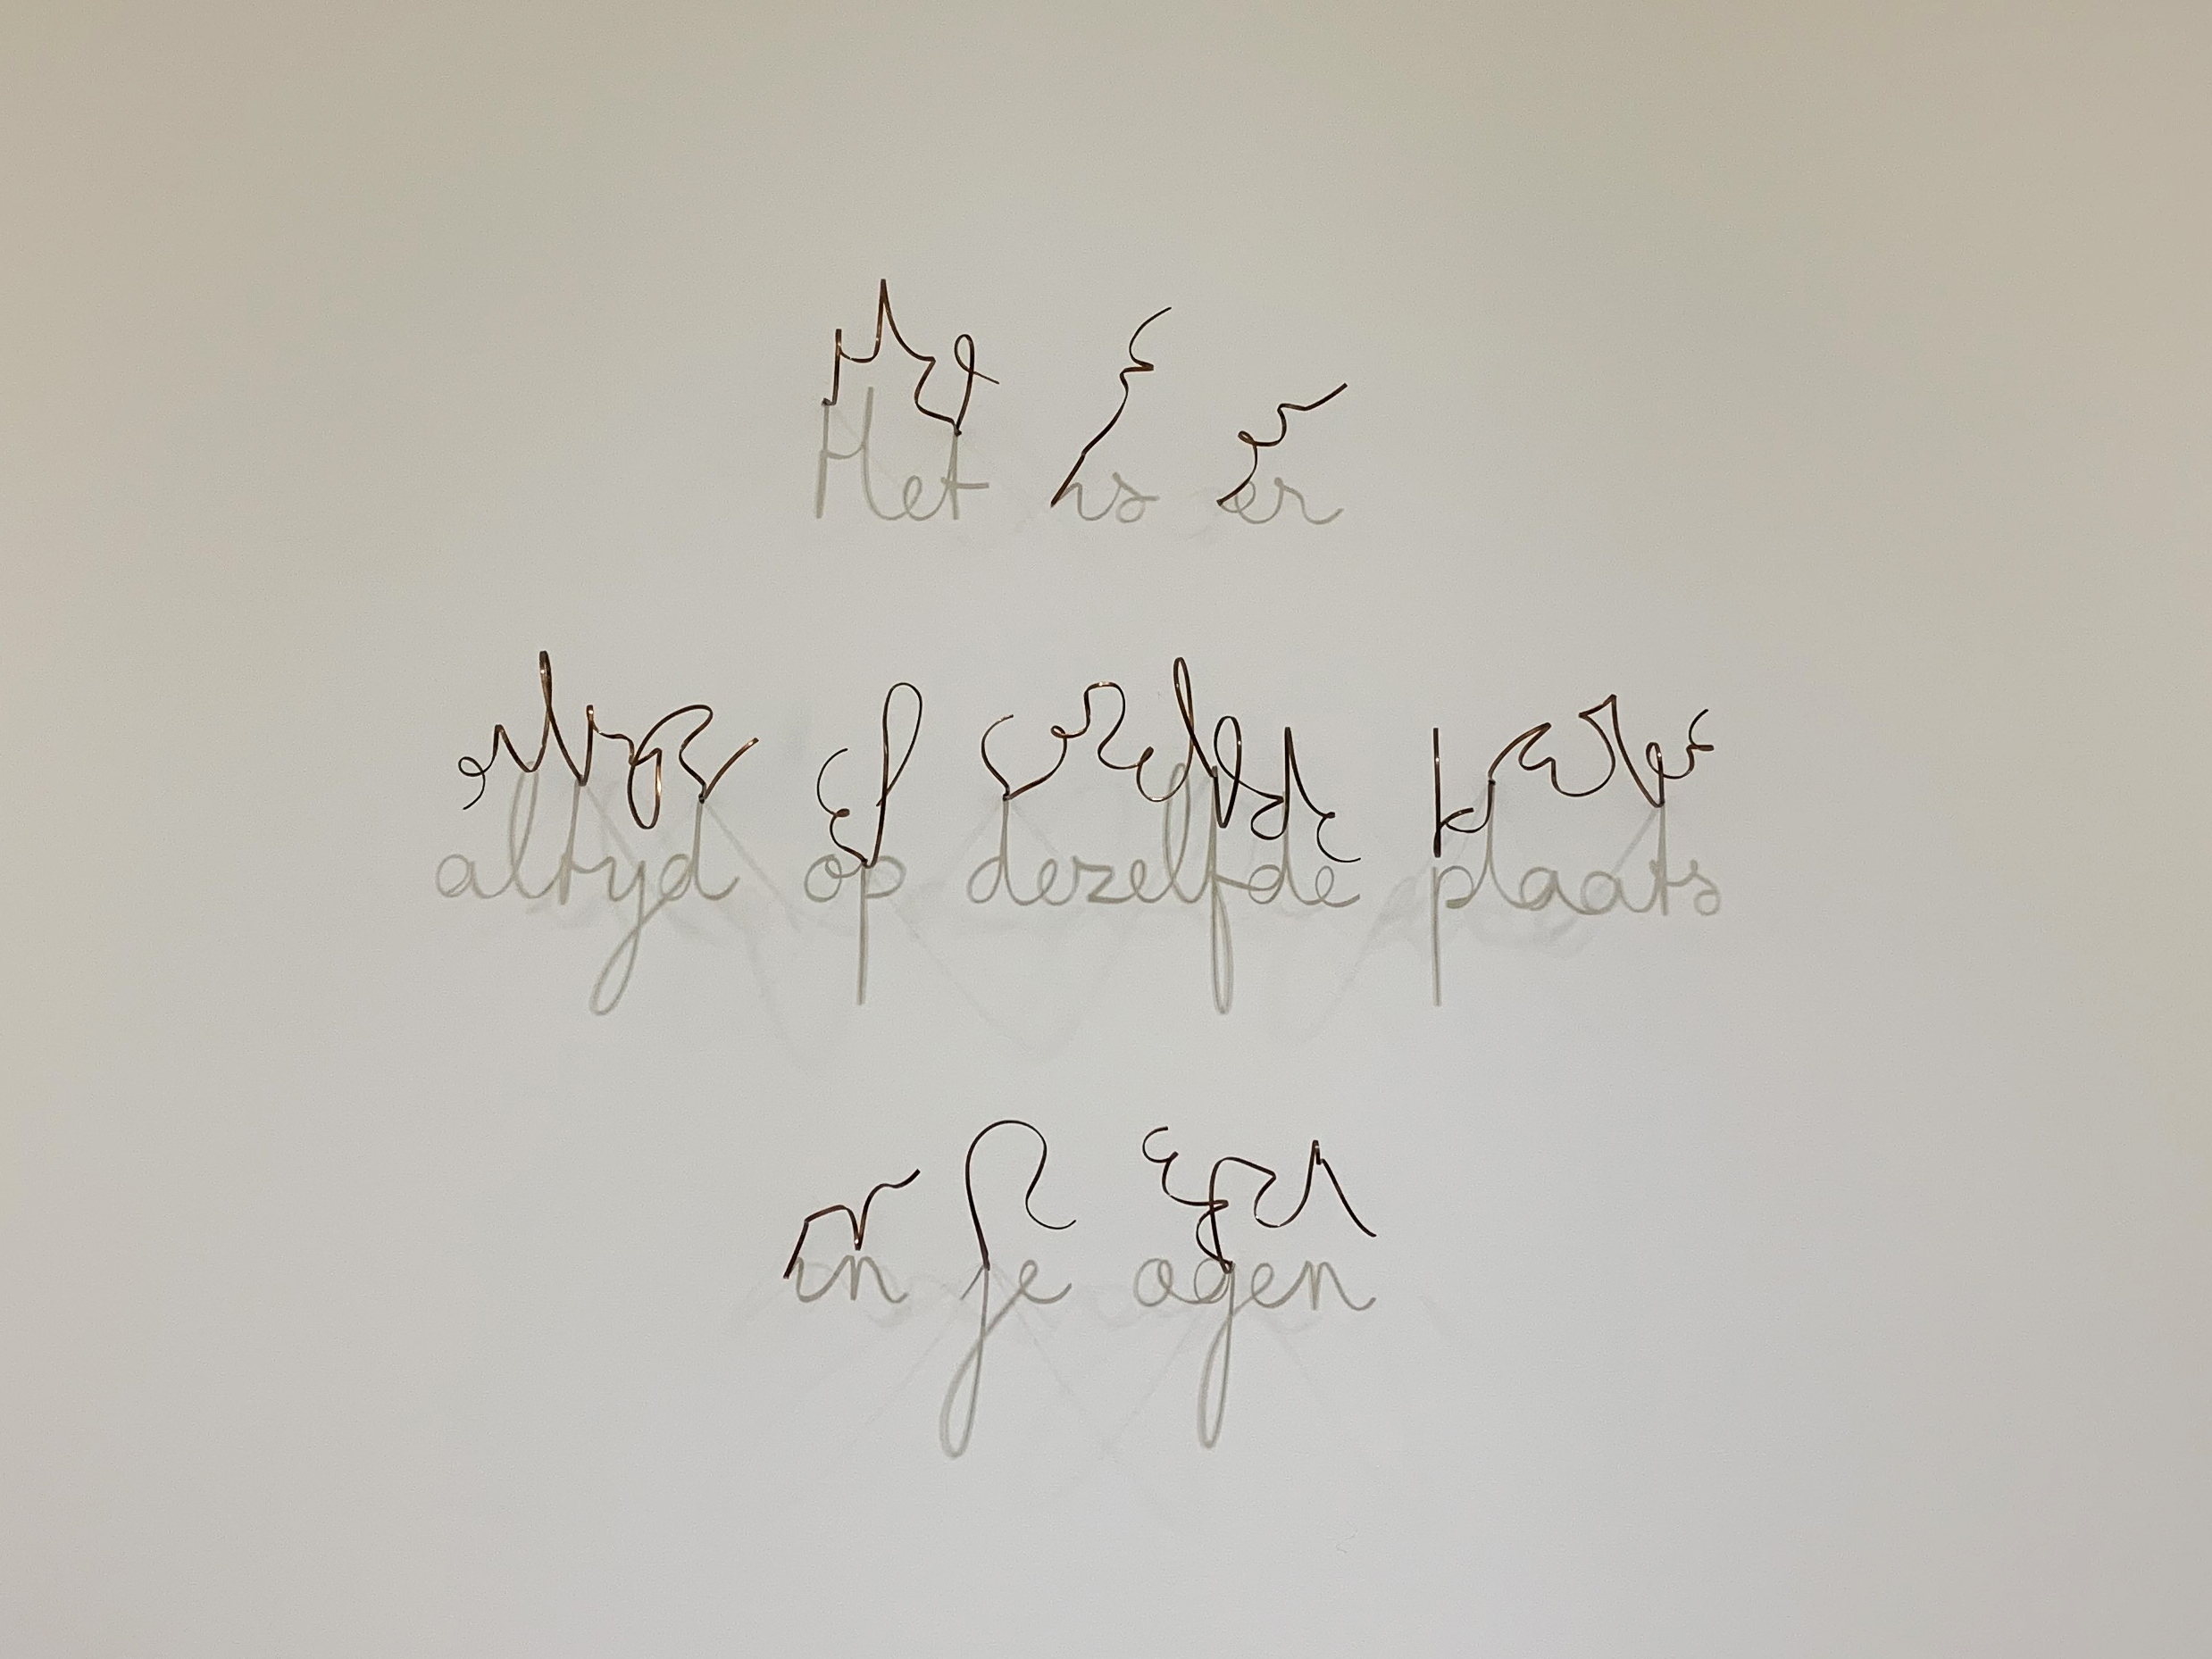 Het is er
altijd op dezelfde plaats
in je ogen